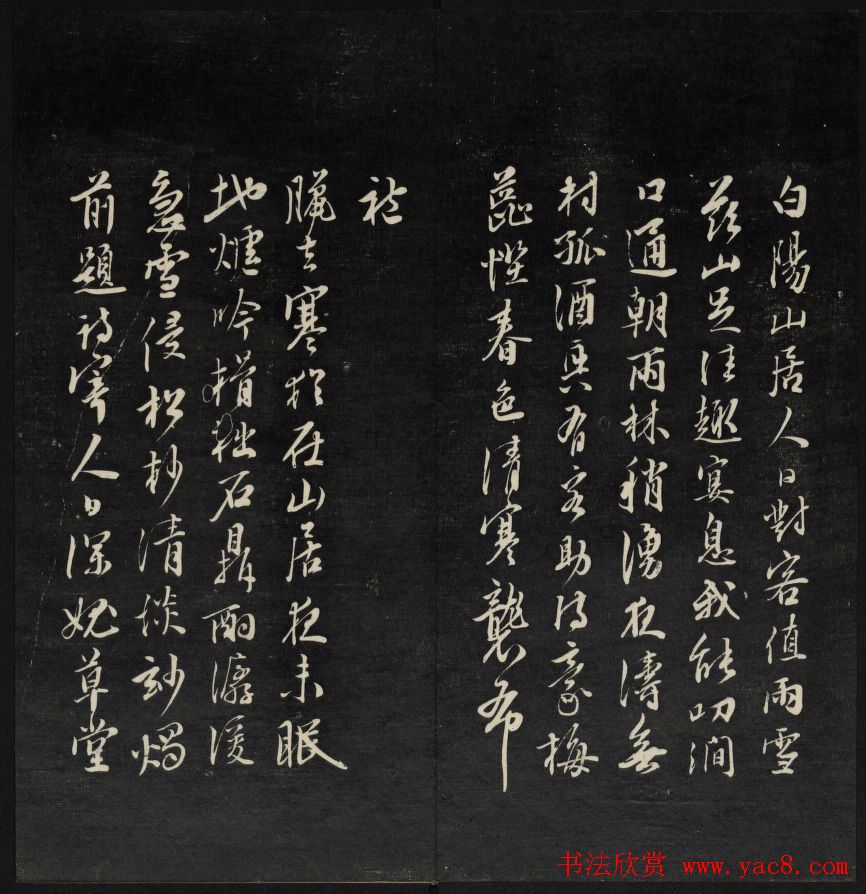 白陽山居人日對客值雨雪
茲山足佳趣宴息我能叨澗
口通朝雨林稍湧夜濤無
村孤酒興有客助詩豪梅
蕊慳春色清寒襲布
袍
臘去寒猶在山居夜未眠
地爐吟榾柮石鼎酌潺湲
急雪侵松杪清談刻燭
前題詩寄人日深愧草堂
书法欣赏 www.yac8.com